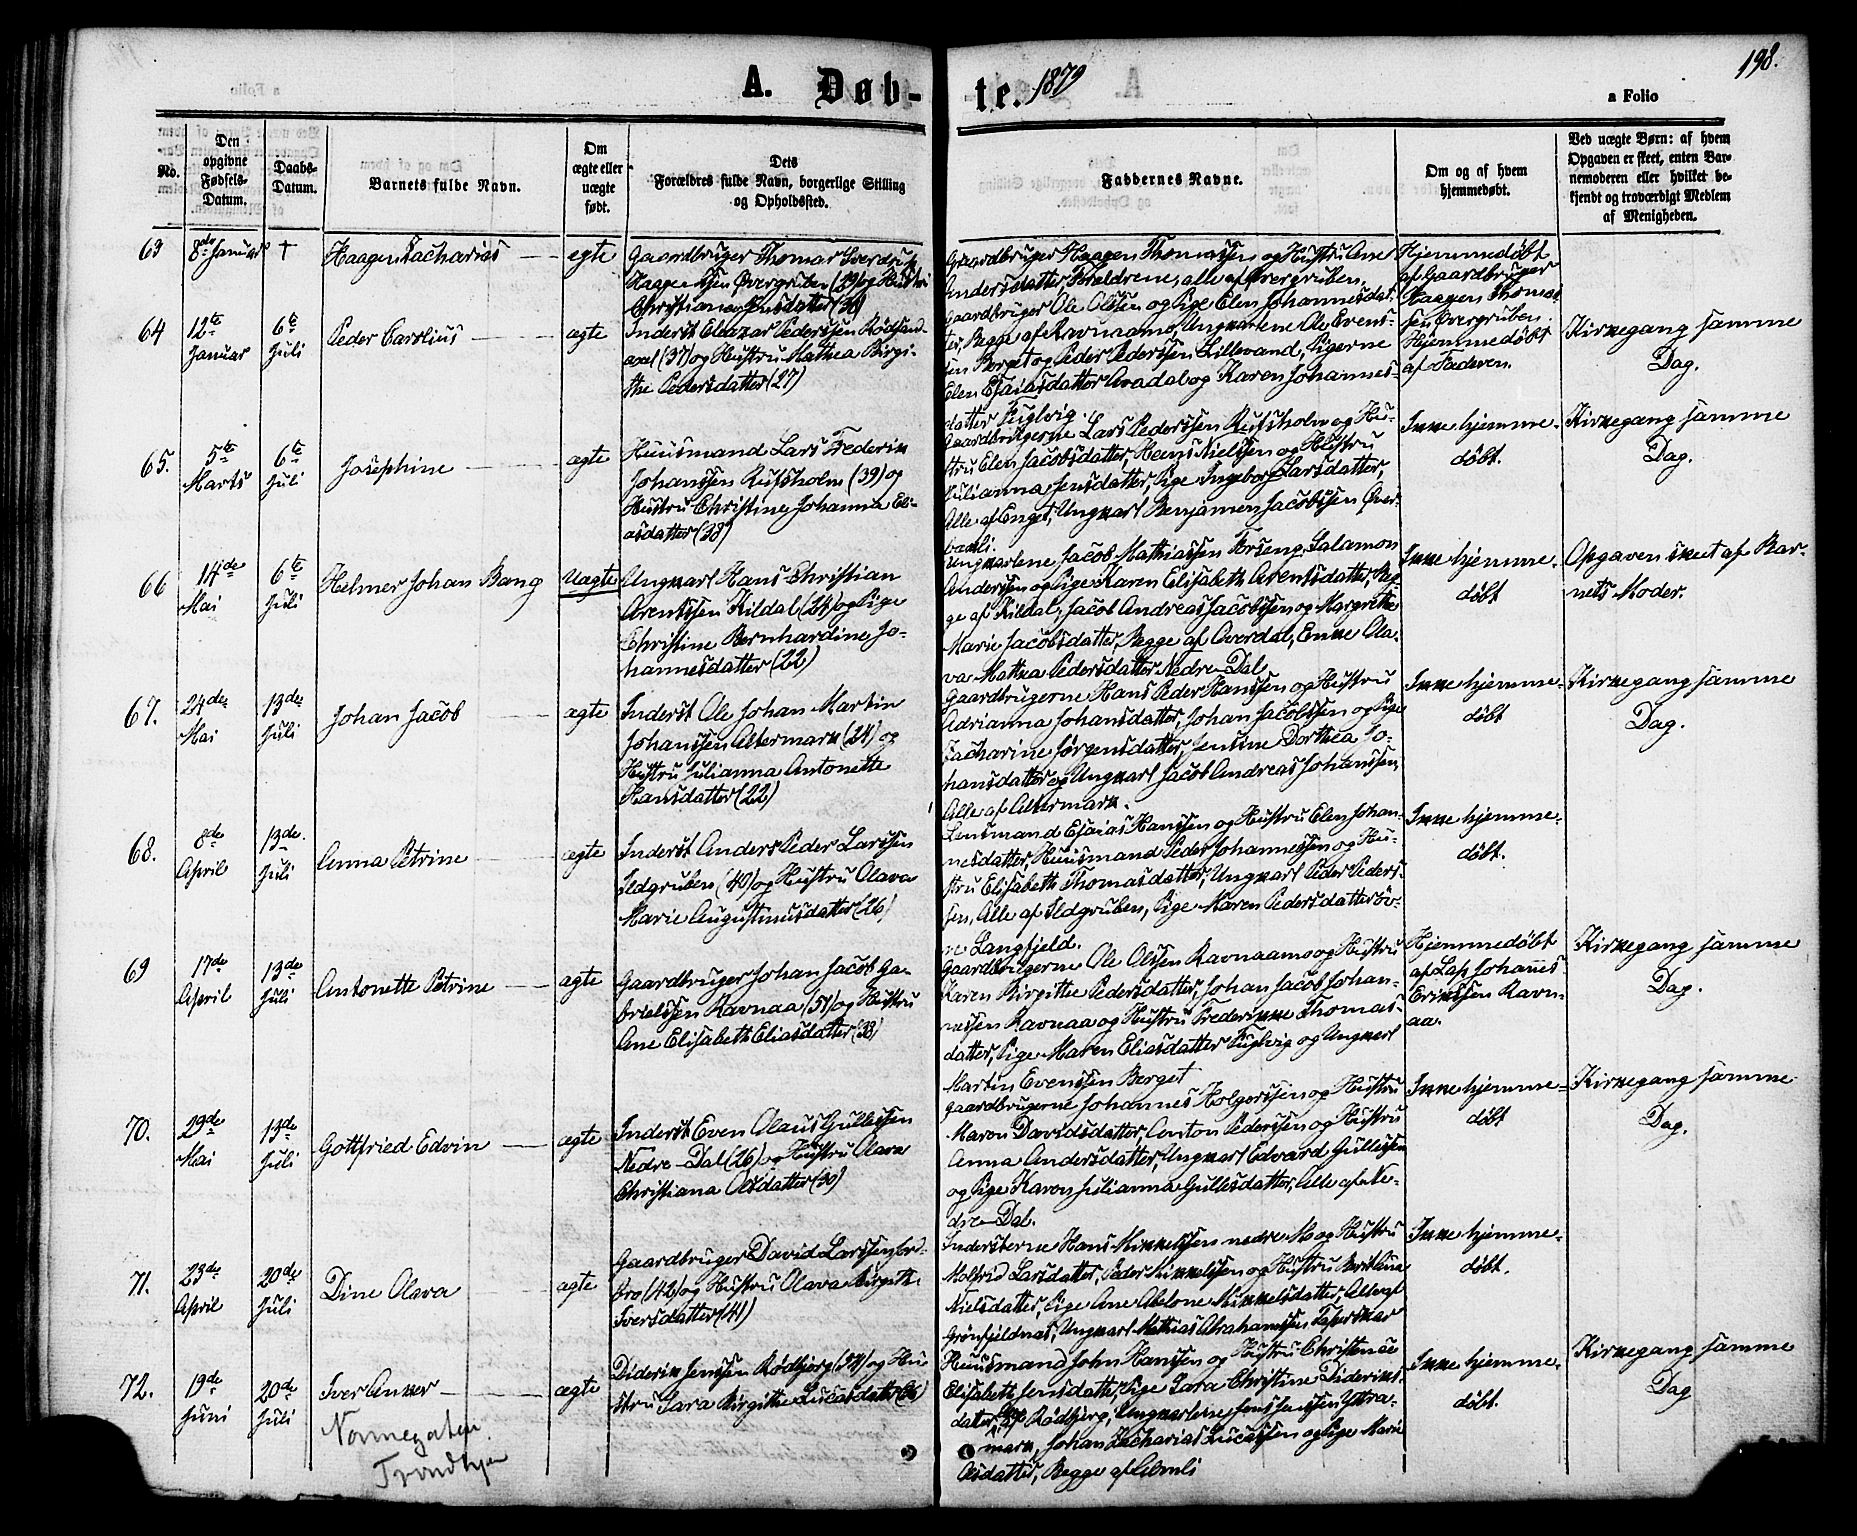 198.
A. Døb-
te. 1879
a Folio
No.
Den
opgivne
Fødsels-
Datum.
Daabs-
Datum.
Barnets fulde Navn.
Om
ægte eller
uægte
født.
Dets
Forældres fulde Navn, borgerlige Stilling
og Opholdssted.
Faddernes Navne.
Om og af hvem
hjemmedøbt.
Ved uægte Børn: af hvem
Opgaven er skeet, enten Bar-
nemoderen eller hvilket be-
kjendt og troværdigt Medlem
af Menigheden.
63
8de Januar
†
Haagen Zacharias
egte
Gaardbruger Thomas Sverdrup
Haagenssen Øvergruben (39) og Hustru
Christiana
Gaardbruger Haagen Thomassen og Hustru Ane
Andersdatter, Forældrene, alle af Øvergruben.
Hjemmedøbt
af Gaardbruger
Haagen Thomas
sen Øvergruben.
64
12te
Januar
6te
Juli
Peder Carolius
ægte
Inderst Eleazar Pederssen Rødsand-
axel (37) og Hustru Mathea Birgi-
the Pedersdatter (27)
Gaardbruger Ole Olssen og Pige Elen Johannesdat-
ter, Begge af Ravnaamo, Ungkarlene Ole Evens-
sen Berget og Peder Pederssen Lillevand, Pigerne
Elen Esaiasdatter Avadal og Karen Johannes-
datter Fuglvig.
Hjemmedøbt
af Faderen.
Kirkegang samme
Dag.
65.
5te
Marts
6te
Juli
Josephine
ægte
Huusmand Lars Frederik
Johanssen Rufsholm (39) og
Hustru Christine Johanna Eli-
asdatter (38)
Gaardbrugerne Lars Pederssen Rufsholm og Hu-
stru Elen Jacobsdatter, Heens Nielssen og Hustru
Julianna Jensdatter, Pige Ingeborg Larsdatter,
Alle af Enget, Ungkarl Benjamen Jacobssen Øver-
Ikke hjemme-
døbt.
Kirkegang samme
Dag.
66
14de
Mai
6te
Juli
Helmer Johan Bang
Uægte
Ungkarl Hans Christian
Arentssen Kildal (24) og Pige
Christine Bernhardine Jo-
hannesdatter (22)
Ungkarlene Jacob Mathiassen Forseng, Salamon
Anderssen og Pige Karen Elisabeth Arentsdatter, Beg-
ge af Kildal, Jacob Andreas Jacobssen og Margrethe
Marie Jacobsdatter, Begge af Overdal, Enke Ola-
va Mathea Pedersdatter Nedre-Dal
Ikke hjemme-
døbt
Opgaven skeet af Bar-
nets Moder.
67.
24de
Mai
13de
Juli
Johan Jacob
ægte
Inderst Ole Johan Martin
Johanssen Altermark (24) og
Hustru Julianna Antonette
Hansdatter (22)
Gaardbrugerne Hans Peder Hanssen og Hustru
Adrianna Johansdatter, Johan Jacobssen og Pige
Zacharine Jørgensdatter, Jensine Dorthea Jo-
hansdatter og Ungkarl Jacob Andreas Johanssen,
Alle af Altermark.
Ikke hjemme-
døbt
Kirkegang samme
Dag.
68.
8de
April
13de
Juli
Anna Petrine
ægte
Inderst Anders Peder Larssen
Ildgruben (40) og Hustru Olava
Marie Augustinusdatter (26)
Lensmand Esaias Hanssen og Hustru Elen Johan-
nesdatter, Huusmand Peder Johannessen og Hu-
stru Elisabeth Thomasdatter, Ungkarl Peder Peders-
sen, Alle af Ildgruben, Pige Maren Pedersdatter øv-
re Langfjeld.
Ikke hjemme-
døbt.
69
17de
April
13de
Juli
Antonette Petrine
ægte
Gaardbruger Johan Jacob Ga-
brielssen Ravnaa (51) og Hustru
Ane Elisabeth Eliasdatter (38)
Gaardbrugerne Ole Olssen Ravnaamo og Hustru
Karen Birgithe Pedersdatter, Johan Jacob Johan-
nessen Ravnaa og Hustru Frederikke Thomas-
datter, Pige Maren Eliasdatter Fuglvig og Ungkarl
Martin Evenssen Berget
Hjemmedøbt
af Lap Johannes
Erikssen Ravn-
aa.
Kirkegang samme
Dag.
70.
29de
Mai
13de
Juli
Gottfried Edvin
ægte
Inderst Even Olaus Gullessen
Nedre-Dal (26) og Hustru Olava
Christiana Olsdatter (30)
Gaardbrugerne Johannes Holgerssen og Hustru
Maren Davidsdatter, Conton Pederssen og Hustru
Anna Andersdatter, Ungkarl Edvard Gullessen
og Pige Karen Julianna Gullesdatter, Alle af Ne-
dre-Dal.
Ikke hjemme-
døbt
Kirkegang samme
Dag.
71.
23de
April
20de
Juli
Dine Olava
ægte
Gaardbruger David Larssen Jord-
bro (42) og Hustru Olava Birgith.
Iversdatter (41)
Indersterne Hans Mikkelssen nedre Mo og Hustru
Molfrid Larsdatter, Peder Mikkelssen og Hustru Beret Lina
Nielsdatter, Pige Ane Abelone Mikkelsdatter, Alle af
Grønfjeldnæs, Ungkarl Mathias Abrahamssen
Ikke hjemme-
døbt.
72.
19de
Juni
20de
Juli
Iver Anker
ægte
Diderik Jenssen Rødbjerg (54) og Hu
stru Sara Birgithe Lucasdatter (36)
Huusmand John Hanssen og Hustru Christence
Elisabeth Jensdatter, Pige Sara Christine Dideriks-
datter, af Rødbjerg, Ungkarlene Jens Jenssen Yttra-
mark, Johan Zacharias Lucassen og Pige Marie
Olsdatter, Begge af Almli
Ikke hjemme-
døbt.
Kirkegang samme
Dag
Nonnegaten.
Trondhjem